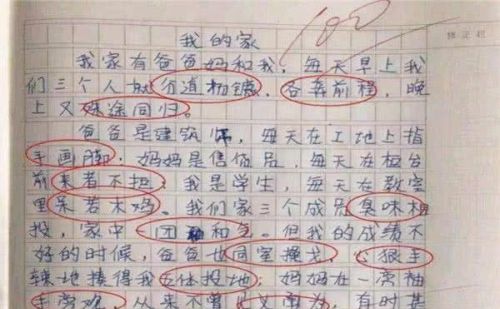 100
我的家
我家有爸爸妈和我,每天早上我
们三个人就分道扬镳,各奔前程,晚
上又殊途同归。
爸爸是建筑师,每天在工地上指
手画脚;妈妈是售货员,每天在柜台
前来者不拒;我是学生,每天在教室
里呆若木鸡。我们家三个成员臭味相
投,家中一团和气。但我的成绩不
好的时候,爸爸也同室操戈,心狠手
辣地揍得我五体投地;妈妈在一旁袖
手旁观,从来不曾见义勇为,有时甚